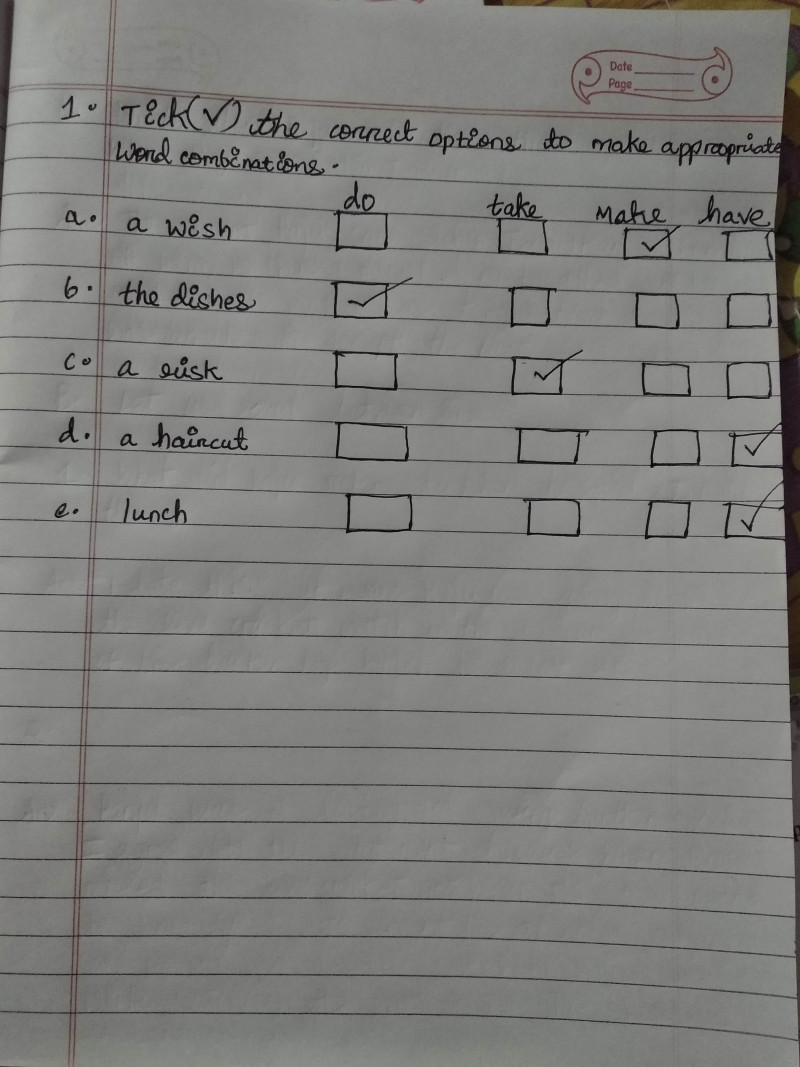 Date
Page
1. Tick(✓) the correct options to make appropriate
word combinations.
do take Make have
a. a wish ☐ ☐ ☑ ☐
b. the dishes ☑ ☐ ☐ ☐
c. a risk ☐ ☑ ☐ ☐
d. a haircut ☐ ☐ ☐ ☑
e. lunch ☐ ☐ ☐ ☑